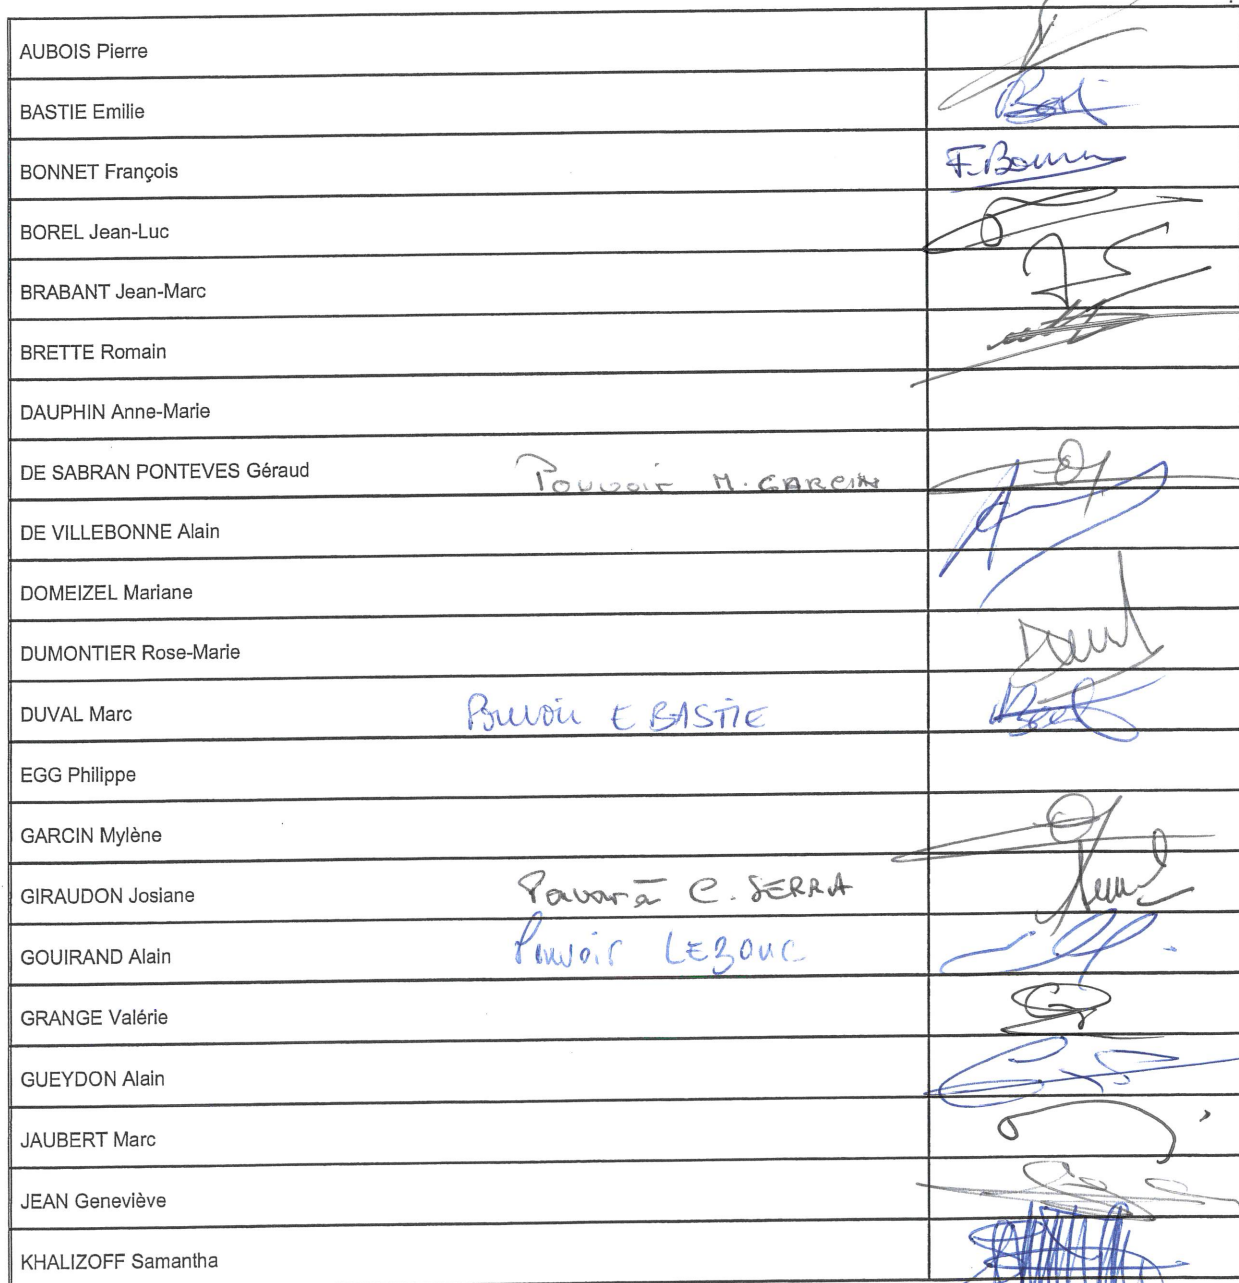 AUBOIS Pierre
BASTIE Emilie
BONNET François F.Bonn
BOREL Jean-Luc
BRABANT Jean-Marc
BRETTE Romain
DAUPHIN Anne-Marie
DE SABRAN PONTEVES Géraud Pouvoir M. GARCIN
DE VILLEBONNE Alain
DOMEIZEL Mariane
DUMONTIER Rose-Marie
DUVAL Marc Pouvoir E BASTIE
EGG Philippe
GARCIN Mylène
GIRAUDON Josiane Pouvoir à C. SERRA
GOUIRAND Alain Pouvoir LEBOUC
GRANGE Valérie
GUEYDON Alain
JAUBERT Marc
JEAN Geneviève
KHALIZOFF Samantha